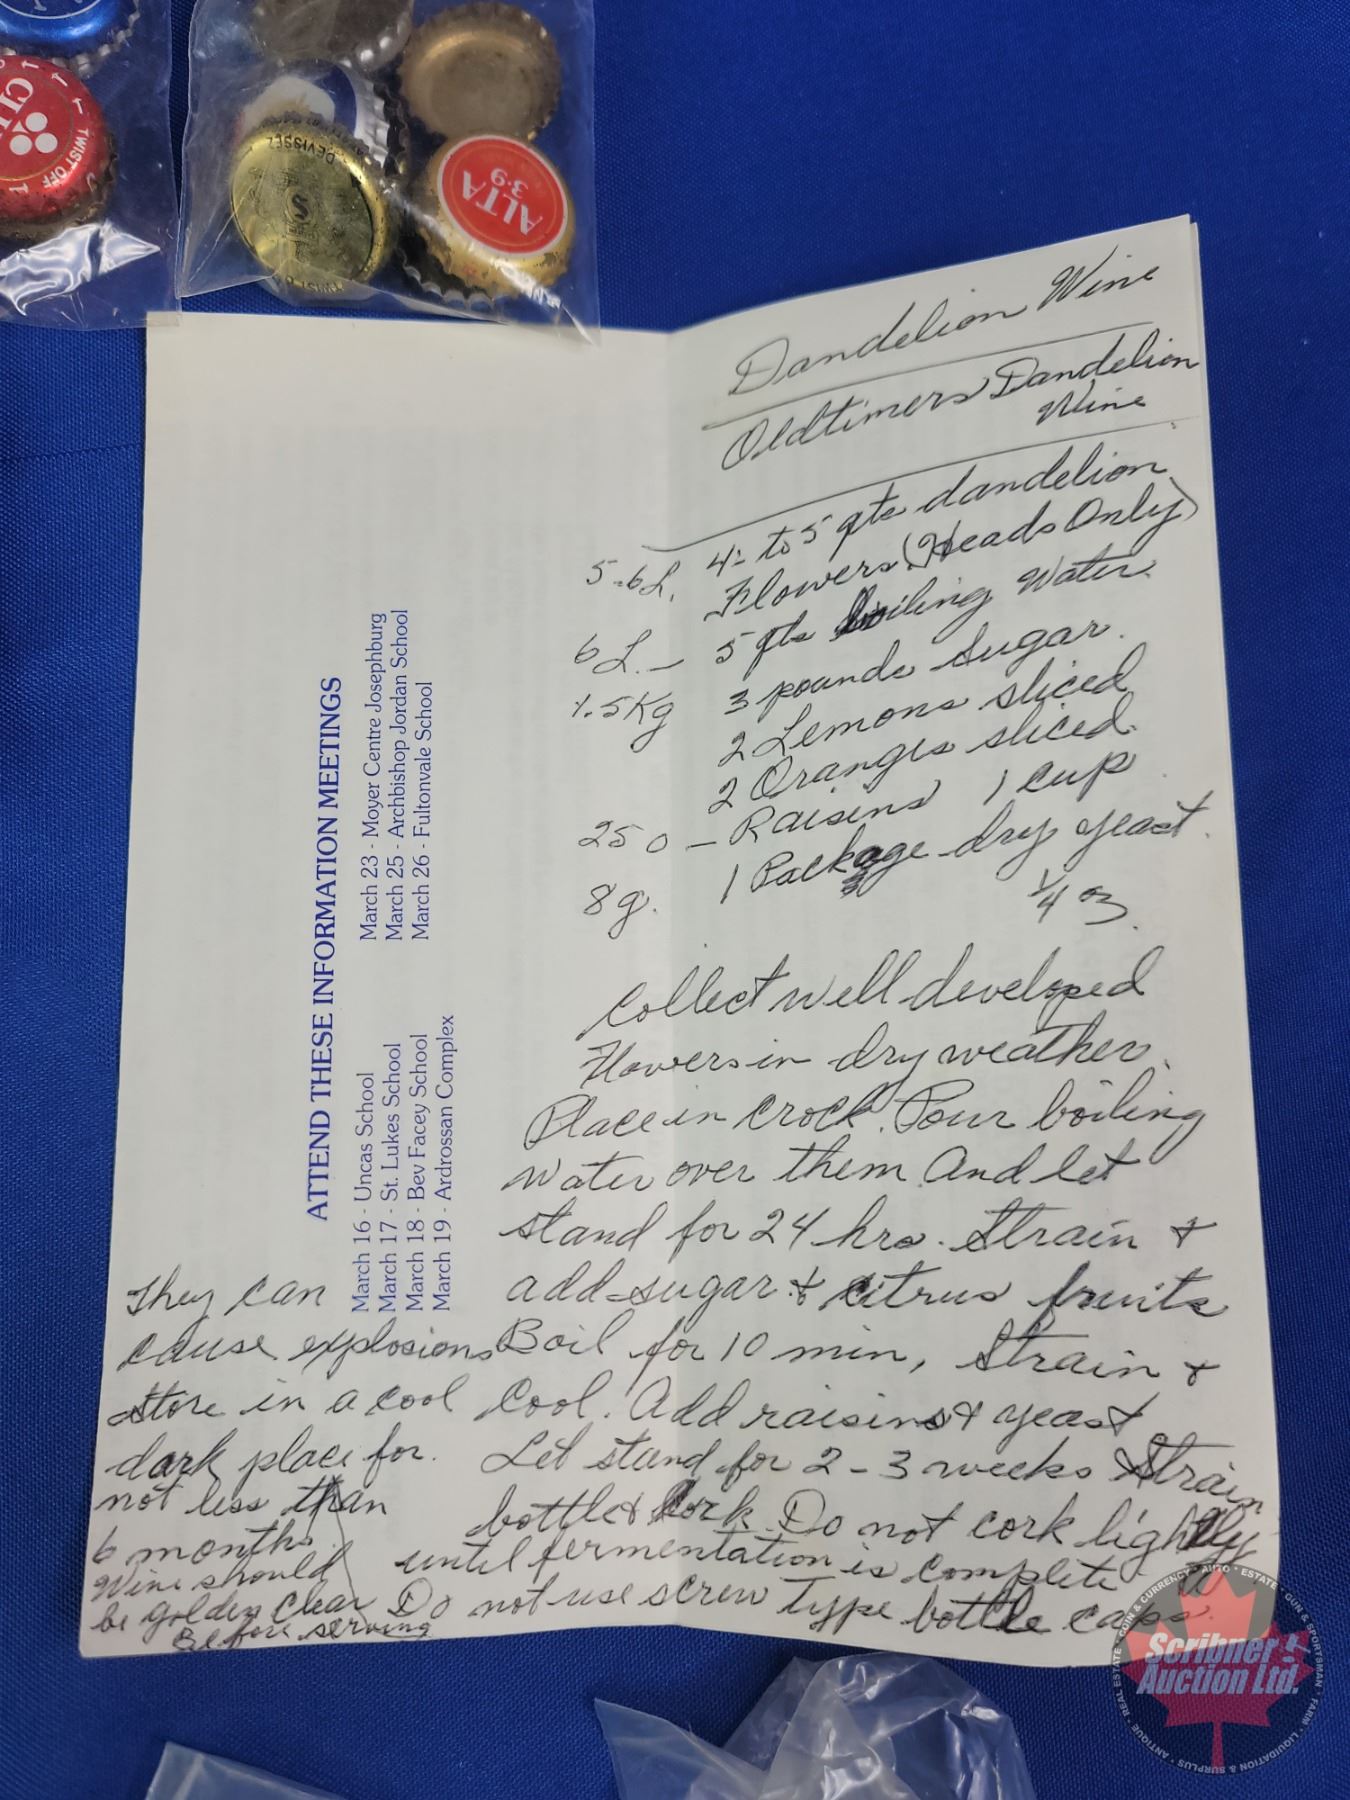 TWIST OFF
DEVISSEZ
ALTA
3.9
Dandelion Wine
Oldtimers Dandelion
Wine
5-6L. 4- to 5 qts dandelion
Flowers (Heads Only)
6 L. - 5 qts boiling Water.
1.5Kg 3 pounds sugar.
2 Lemons sliced
2 Oranges sliced.
250 - Raisins 1 cup
8g. 1 Package dry yeast.
1/4 oz.
Collect well developed
Flowers in dry weather.
Place in crock. Pour boiling
water over them And let
stand for 24 hrs. Strain &
add sugar & citrus fruits
Boil for 10 min, Strain &
Cool. Add raisins & yeast
Let stand for 2-3 weeks Strain
bottle & Cork. Do not cork lightly
until fermentation is complete
Do not use screw type bottle caps.
They can
cause explosions
store in a cool
dark place for.
not less than
6 months.
Wine should
be golden clear
Before serving
ATTEND THESE INFORMATION MEETINGS
March 16 - Uncas School
March 17 - St. Lukes School
March 18 - Bev Facey School
March 19 - Ardrossan Complex
March 23 - Moyer Centre Josephburg
March 25 - Archbishop Jordan School
March 26 - Fultonvale School
Scribner
Auction Ltd.
ANTIQUE * REAL ESTATE * COIN & CURRENCY * AUTO * ESTATE * GUN & SPORTSMAN * FARM * LIQUIDATION & SURPLUS